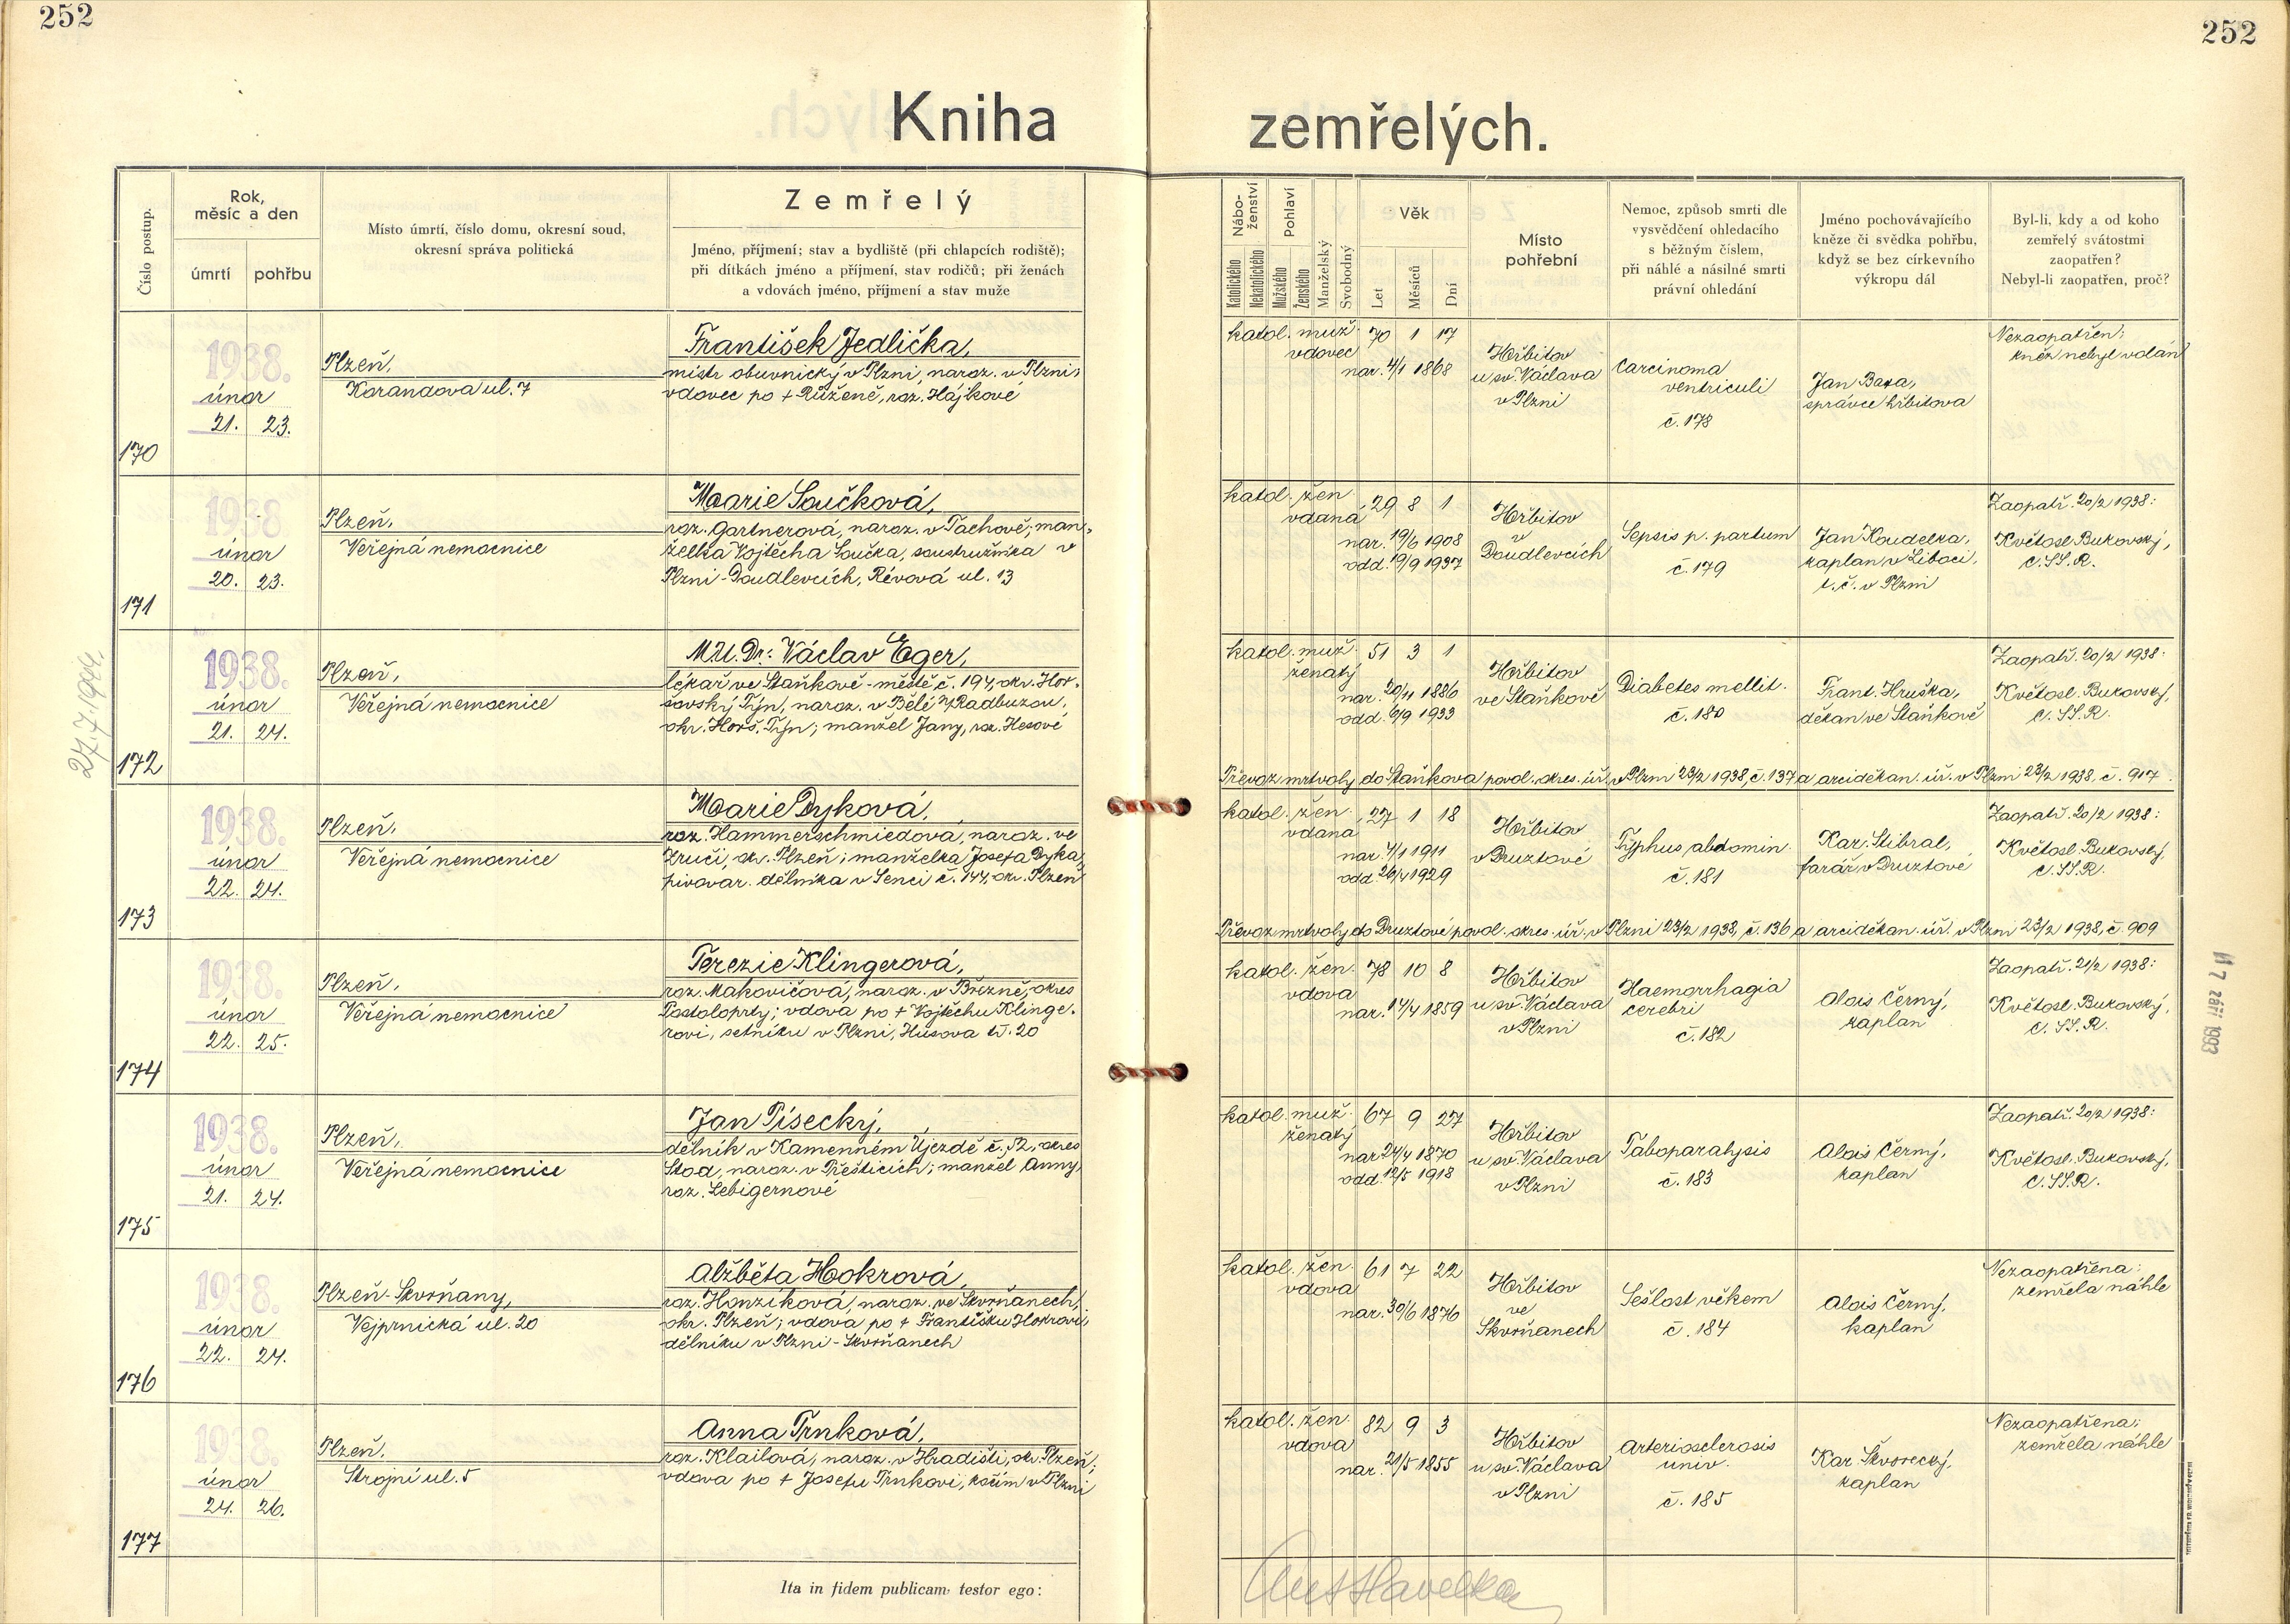 252
252
Kniha
zemřelých.
Číslo postup.
Rok,
měsíc a den
úmrtí
pohřbu
Místo úmrtí, číslo domu, okresní soud,
okresní správa politická
Zemřelý
Jméno, příjmení; stav a bydliště (při chlapcích rodiště);
při dítkách jméno a příjmení, stav rodičů; při ženách
a vdovách jméno, příjmení a stav muže
Nábo-
ženství
Katolického
Nekatolického
Pohlaví
Mužského
Ženského
Manželský
Svobodný
Věk
Let
Měsíců
Dní
Místo
pohřební
Nemoc, způsob smrti dle
vysvědčení ohledacího
s běžným číslem,
při náhlé a násilné smrti
právní ohledání
Jméno pochovávajícího
kněze či svědka pohřbu,
když se bez církevního
výkropu dál
Byl-li, kdy a od koho
zemřelý svátostmi
zaopatřen?
Nebyl-li zaopatřen, proč?
170
1938.
únor
21. 23.
Plzeň,
Korandova ul. 7
František Jedlička,
mistr obuvnický v Plzni, naroz. v Plzni;
vdovec po + Růženě, roz. Hájkové
katol. muž. 70 1 17
vdovec
nar. 4/1 1868
Hřbitov
u sv. Václava
v Plzni
Carcinoma
ventriculi
č. 178
Jan Baxa,
správce hřbitova
Nezaopatřen;
kněz nebyl volán
171
1938
únor
20. 23.
Plzeň,
Veřejná nemocnice
Marie Součková,
roz. Gartnerová, naroz. v Tachově; man-
želka Vojtěcha Součka, soustružníka v
Plzni-Doudlevcích, Révová ul. 13
katol. žen. 29 8 1
vdaná
nar. 19/6 1908
odd. 19/9 1937
Hřbitov
v
Doudlevcích
Sepsis p. partum
č. 179
Jan Koudelka,
kaplan v Liboci,
t. č. v Plzni
Zaopatř. 20/2 1938:
Květosl. Bukovský,
C. SS. R.
27.7.1944.
172
1938.
únor
21. 24.
Plzeň,
Veřejná nemocnice
MU. Dr. Václav Eger,
lékař ve Staňkově-městě č. 194, okr. Hor-
šovský Týn, naroz. v Bělé n/Radbuzou,
okr. Horš. Týn; manžel Jany, roz. Hesové
katol. muž. 51 3 1
ženatý
nar. 20/11 1886
odd. 6/9 1933
Hřbitov
ve Staňkově
Diabetes mellit.
č. 180
Frant. Hruška,
děkan ve Staňkově
Zaopatř. 20/2 1938:
Květosl. Bukovský,
C. SS. R.
Převoz mrtvoly do Staňkova povol. okres. úř. v Plzni 23/2 1938, č. 137 a arciděkan. úř. v Plzni 23/2 1938, č. 917.
173
1938.
únor
22. 24.
Plzeň,
Veřejná nemocnice
Marie Dyková,
roz. Hammerschmiedová, naroz. ve
Zruči, okr. Plzeň; manželka Josefa Dyka,
pivovar. dělníka v Senci č. 144, okr. Plzeň
katol. žen. 27 1 18
vdaná
nar. 4/1 1911
odd. 26/4 1929
Hřbitov
v Druztové
Typhus abdomin.
č. 181
Kar. Stibral,
farář v Druztové
Zaopatř. 20/2 1938:
Květosl. Bukovský,
C. SS. R.
Převoz mrtvoly do Druztové povol. okres. úř. v Plzni 23/2 1938, č. 136 a arciděkan. úř. v Plzni 23/2 1938, č. 909
174
1938.
únor
22. 25.
Plzeň,
Veřejná nemocnice
Terezie Klingerová,
roz. Makovičová, naroz. v Březně, okres
Postoloprty; vdova po + Vojtěchu Klinge-
rovi, setníku v Plzni, Husova tř. 20
katol. žen. 78 10 8
vdova
nar. 14/4 1859
Hřbitov
u sv. Václava
v Plzni
Haemorrhagia
cerebri
č. 182
Alois Černý,
kaplan
Zaopatř. 21/2 1938:
Květosl. Bukovský,
C. SS. R.
17 září 1993
175
1938.
únor
21. 24.
Plzeň,
Veřejná nemocnice
Jan Písecký,
dělník v Kamenném Újezdě č. 52, okres
Stod, naroz. v Přešticích; manžel Anny,
roz. Lebigernové
katol. muž. 67 9 27
ženatý
nar. 24/4 1870
odd. 12/5 1918
Hřbitov
u sv. Václava
v Plzni
Taboparalysis
č. 183
Alois Černý,
kaplan
Zaopatř. 20/2 1938:
Květosl. Bukovský,
C. SS. R.
176
1938.
únor
22. 24.
Plzeň-Skvrňany,
Vejprnická ul. 20
Alžběta Hokrová,
roz. Honzíková, naroz. ve Skvrňanech,
okr. Plzeň; vdova po + Františku Hokrovi,
dělníku v Plzni-Skvrňanech
katol. žen. 61 7 22
vdova
nar. 30/6 1876
Hřbitov
ve
Skvrňanech
Sešlost věkem
č. 184
Alois Černý,
kaplan
Nezaopatřena:
zemřela náhle
177
1938.
únor
24. 26.
Plzeň,
Strojní ul. 5
Anna Trnková,
roz. Klailová, naroz. v Hradišti, okr. Plzeň;
vdova po + Josefu Trnkovi, kočím v Plzni
katol. žen. 82 9 3
vdova
nar. 21/5 1855
Hřbitov
u sv. Václava
v Plzni
Arteriosclerosis
univ.
č. 185
Kar. Škvorecký,
kaplan
Nezaopatřena;
zemřela náhle
Ita in fidem publicam testor ego:
Ant Havelka